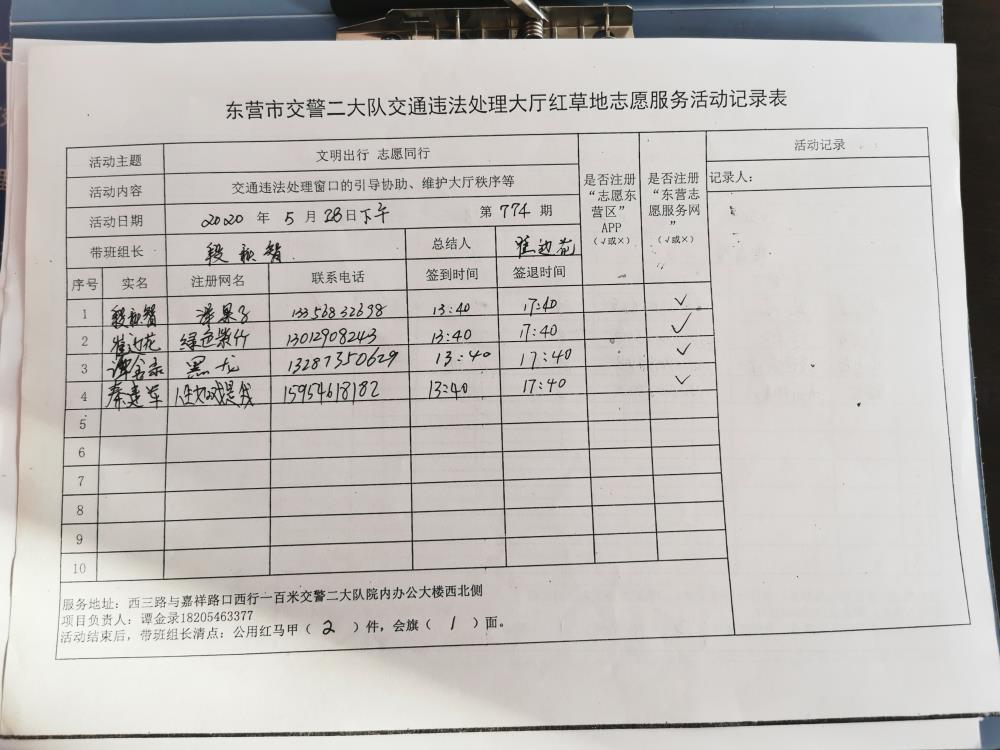 东营市交警二大队交通违法处理大厅红草地志愿服务活动记录表
活动主题 文明出行 志愿同行
活动内容 交通违法处理窗口的引导协助、维护大厅秩序等
活动日期 2020 年 5 月 28日下午 第 774 期
带班组长 段 智 总结人
是否注册“志愿东营区”APP（√或×）
是否注册“东营志愿服务网”（√或×）
活动记录
记录人：
序号 实名 注册网名 联系电话 签到时间 签退时间
1 段 智 洋果子 13356832698 13:40 17:40 √
2 绿色紫竹 13012908243 13:40 17:40 √
3 谭金录 黑龙 13287350629 13:40 17:40 √
4 秦建军 15954618182 13:40 17:40 √
5
6
7
8
9
10
服务地址：西三路与嘉祥路口西行一百米交警二大队院内办公大楼西北侧
项目负责人：谭金录18205463377
活动结束后，带班组长清点：公用红马甲（ 2 ）件，会旗（ 1 ）面。